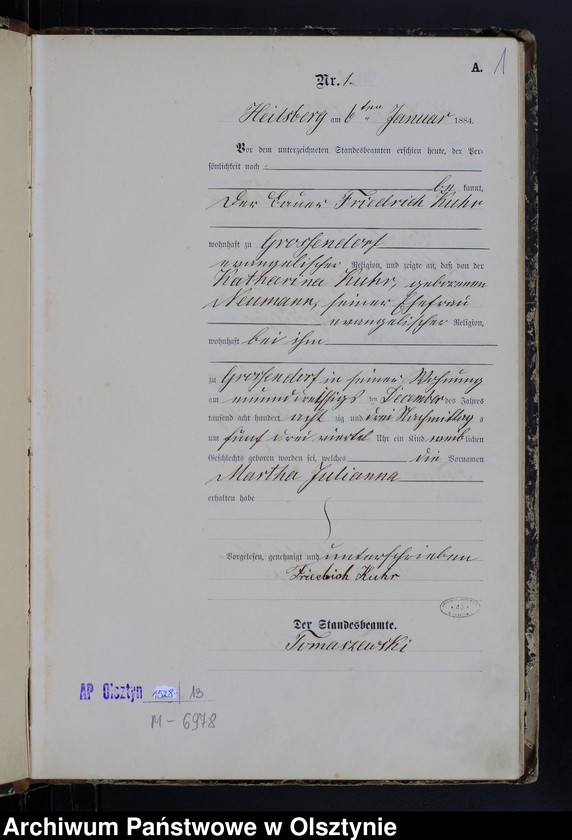 A. 1
Nr. 1.
Heilsberg am 6ten Januar 1884.
Vor dem unterzeichneten Standesbeamten erschien heute, der Per-
sönlichkeit nach
be kannt,
Der Bauer Friedrich Kuhr
wohnhaft zu Grossendorf
evangelischer Religion, und zeigte an, daß von der
Katharina Kuhr, geborenen
Neumann, seiner Ehefrau
evangelischer Religion,
wohnhaft bei ihm
zu Grossendorf in seiner Wohnung
am ein und dreissigsten December des Jahres
tausend acht hundert acht zig und drei Nachmittags
um fünf drei viertel Uhr ein Kind weib lichen
Geschlechts geboren worden sei, welches die Vornamen
Martha Julianna
erhalten habe
Vorgelesen, genehmigt und unterschrieben
Friedrich Kuhr
Der Standesbeamte.
Tomaszewski
AP Olsztyn 1528 13
M-6978
Archiwum Państwowe w Olsztynie